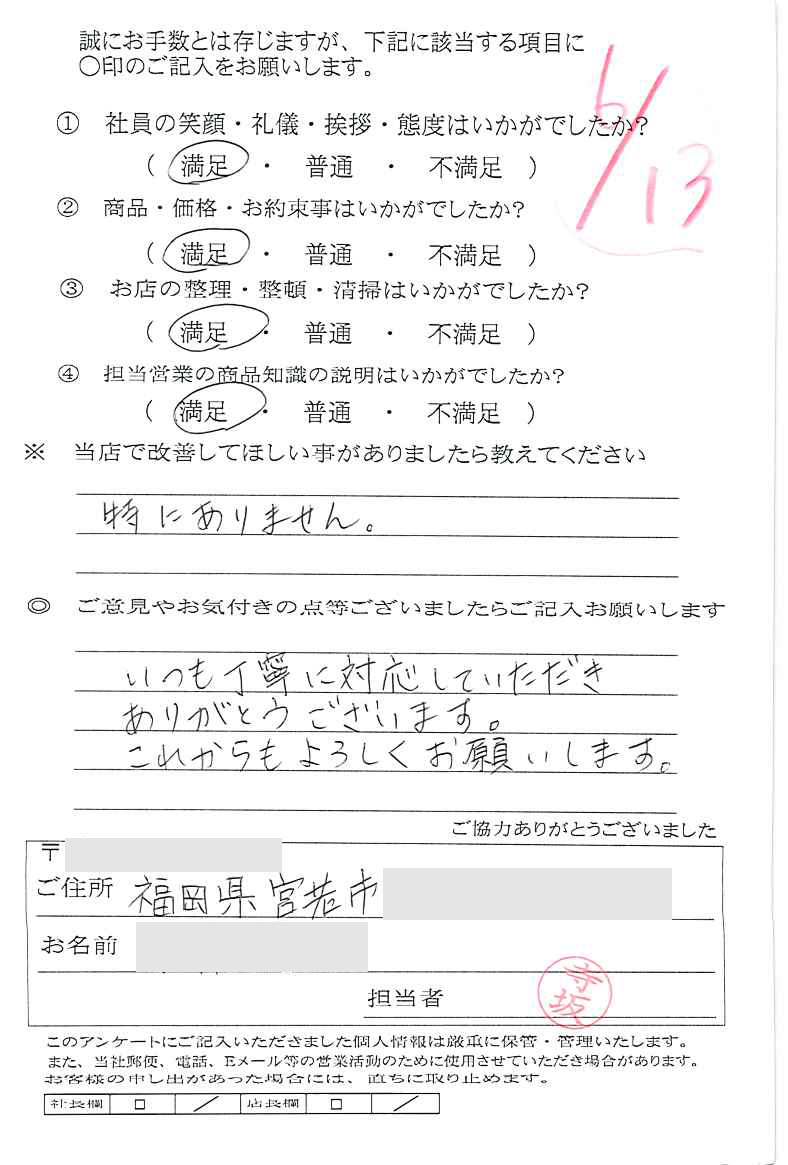 誠にお手数とは存じますが、下記に該当する項目に
〇印のご記入をお願いします。
6/13
① 社員の笑顔・礼儀・挨拶・態度はいかがでしたか?
( 満足 ・ 普通 ・ 不満足 )
② 商品・価格・お約束事はいかがでしたか?
( 満足 ・ 普通 ・ 不満足 )
③ お店の整理・整頓・清掃はいかがでしたか?
( 満足 ・ 普通 ・ 不満足 )
④ 担当営業の商品知識の説明はいかがでしたか?
( 満足 ・ 普通 ・ 不満足 )
※ 当店で改善してほしい事がありましたら教えてください
特にありません。
◎ ご意見やお気付きの点等ございましたらご記入お願いします
いつも丁寧に対応していただき
ありがとうございます。
これからもよろしくお願いします。
ご協力ありがとうございました
〒
ご住所 福岡県宮若市
お名前
担当者 寺坂
このアンケートにご記入いただきました個人情報は厳重に保管・管理いたします。
また、当社郵便、電話、Eメール等の営業活動のために使用させていただき場合があります。
お客様の申し出があった場合には、直ちに取り止めます。
社長欄 □ ／ 店長欄 □ ／